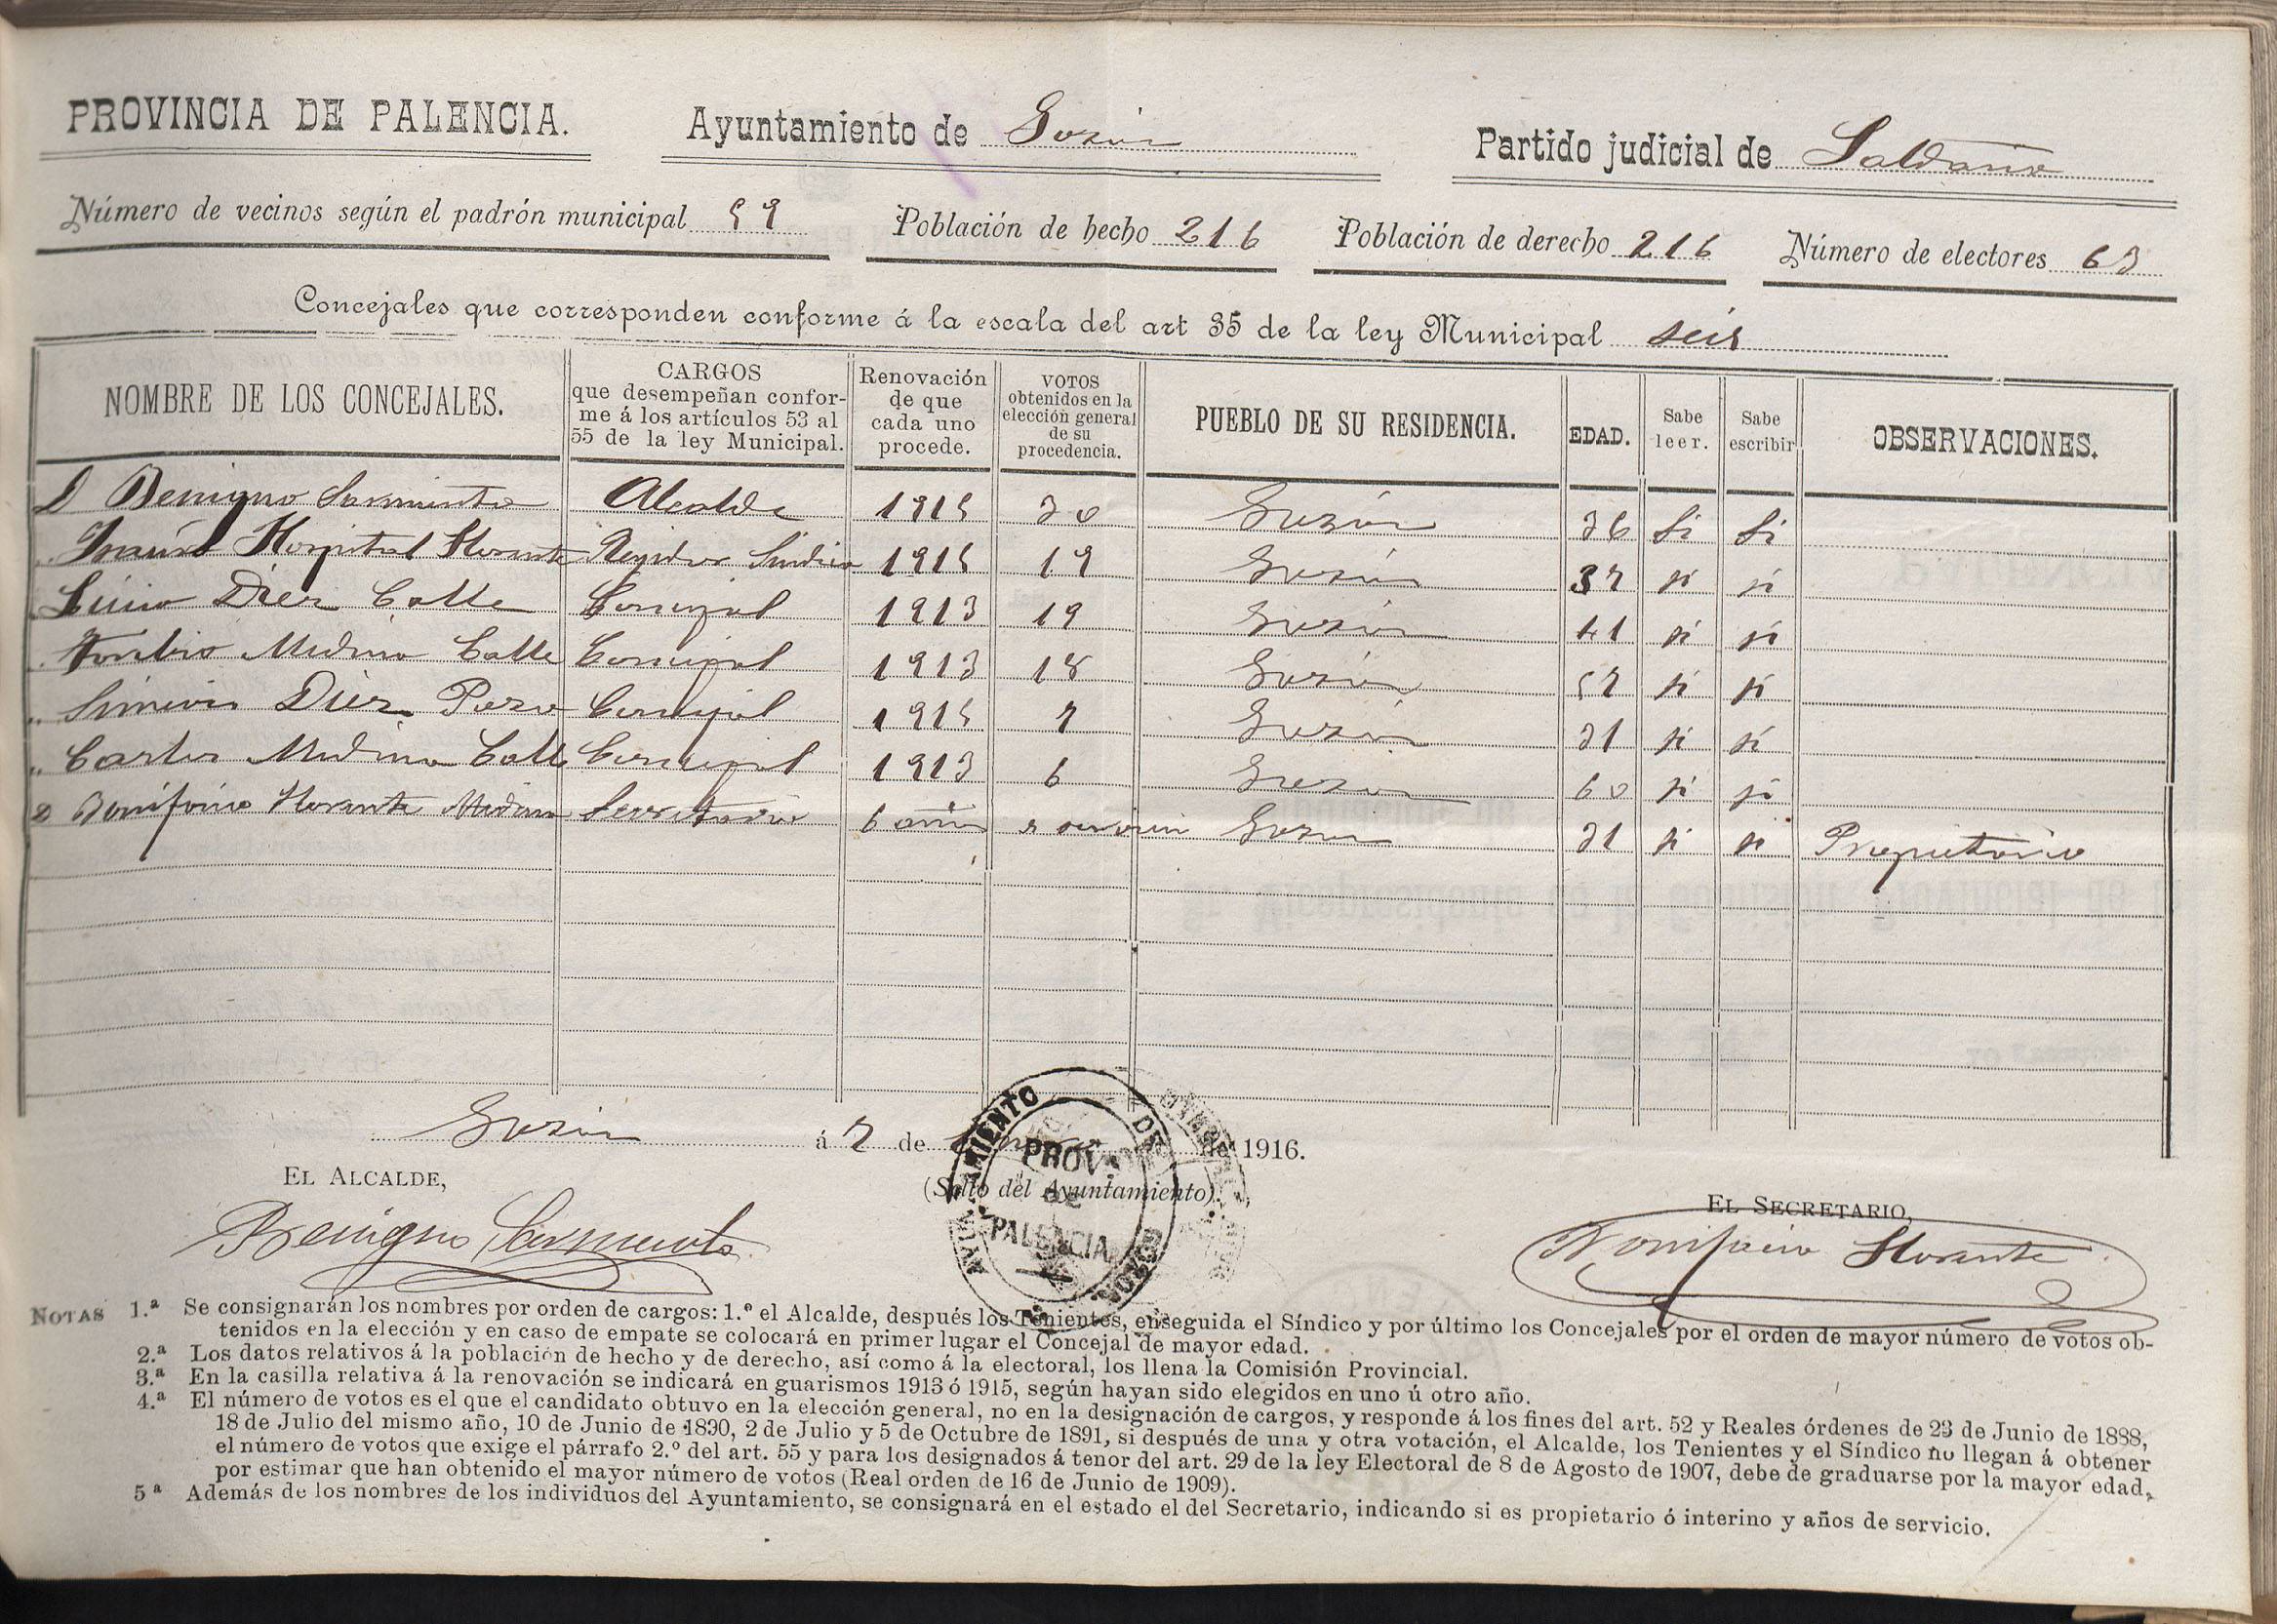 PROVINCIA DE PALENCIA. Ayuntamiento de Gozón Partido judicial de Saldaña
Número de vecinos según el padrón municipal 59 Población de hecho 216 Población de derecho 216 Número de electores 63
Concejales que corresponden conforme á la escala del art 35 de la ley Municipal seis
NOMBRE DE LOS CONCEJALES. CARGOS que desempeñan confor-me á los artículos 53 al 55 de la ley Municipal. Renovación de que cada uno procede. VOTOS obtenidos en la elección general de su procedencia. PUEBLO DE SU RESIDENCIA. EDAD. Sabe leer. Sabe escribir OBSERVACIONES.
D Benigno Sarmiento Alcalde 1915 20 Gozón 36 Si Si
Hospital Llorente Regidor Sindico 1915 19 Gozón 37 si si
Diez Calle Concejal 1913 19 Gozón 41 si si
Toribio Medina Calle Concejal 1913 18 Gozón 57 si si
Simeon Diez Pozo Concejal 1915 7 Gozón 31 si si
Carlos Medina Calle Concejal 1913 6 Gozon 60 si si
D Bonifacio Llorente Medina Secretario 6 años Gozon 31 si si Propietario
Gozón á 7 de de 1916.
EL ALCALDE,
Benigno Sarmiento
(Sello del Ayuntamiento).
AYUNTAMIENTO DE GOZON
PROV. DE PALENCIA
EL SECRETARIO,
Bonifacio Llorente
NOTAS 1.ª Se consignarán los nombres por orden de cargos: 1.º el Alcalde, después los Tenientes, enseguida el Síndico y por último los Concejales por el orden de mayor número de votos ob-
tenidos en la elección y en caso de empate se colocará en primer lugar el Concejal de mayor edad.
2.ª Los datos relativos á la población de hecho y de derecho, así como á la electoral, los llena la Comisión Provincial.
3.ª En la casilla relativa á la renovación se indicará en guarismos 1913 ó 1915, según hayan sido elegidos en uno ú otro año.
4.ª El número de votos es el que el candidato obtuvo en la elección general, no en la designación de cargos, y responde á los fines del art. 52 y Reales órdenes de 23 de Junio de 1888,
18 de Julio del mismo año, 10 de Junio de 1890, 2 de Julio y 5 de Octubre de 1891, si después de una y otra votación, el Alcalde, los Tenientes y el Síndico no llegan á obtener
el número de votos que exige el párrafo 2.º del art. 55 y para los designados á tenor del art. 29 de la ley Electoral de 8 de Agosto de 1907, debe de graduarse por la mayor edad,
por estimar que han obtenido el mayor número de votos (Real orden de 16 de Junio de 1909).
5ª Además de los nombres de los individuos del Ayuntamiento, se consignará en el estado el del Secretario, indicando si es propietario ó interino y años de servicio.